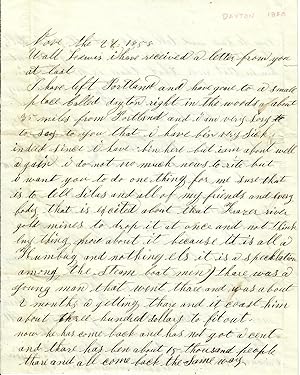 DAYTON 1858
Nove the 26 1858
Wall Lewis i have received a letter from you
at last
I have left Portland and have gone to a small
place Called dayton right in the woods about
miles from Portland and i am very sory to
to say to you that i have bin very Sick
indeed since i have bin here but i am about well
again i do not no much news to rite but
i want you to do one thing for me sure that
is to tell Silas and all of my friends and every
body that is excited about that Frazer river
gold mines to drop it at once and not think
any thing more about it because it is all a
Humbug and nothing els it is a specklation
among the Steam boat men there was a
young man that went thare and was about
2 months a getting thare and it cost him
about three hundred dollars to fit out
now he has come back and has not got a cent
and thare has ben about 15 thousand people
thare and all come back the same way